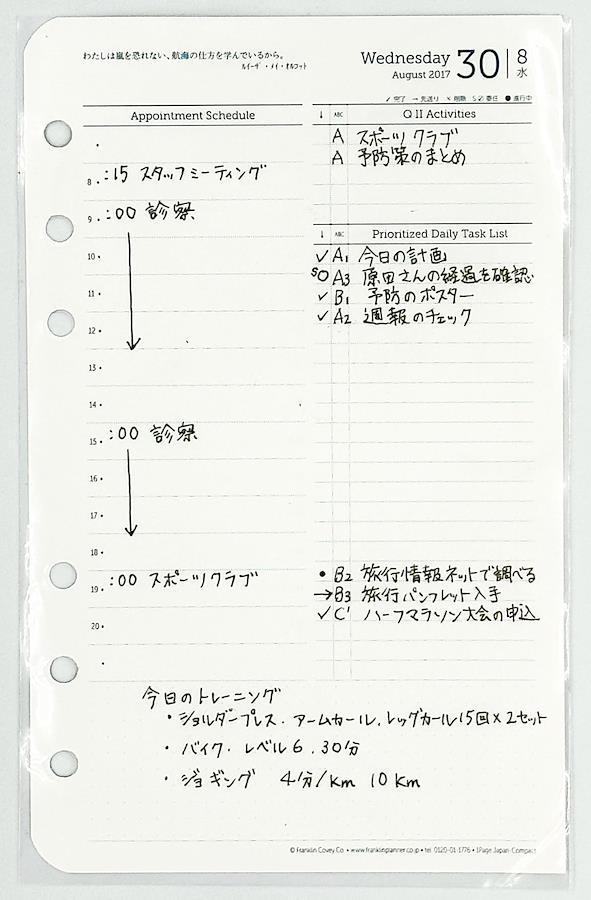 わたしは嵐を恐れない、航海の仕方を学んでいるから。
ルイーザ・メイ・オルコット
Wednesday 30 8
August 2017 水
✓完了 →先送り ×削除 S○委任 ●進行中
Appointment Schedule
8 .:15 スタッフミーティング
9 .:00 診察
10
11
12
13
14
15 .:00 診察
16
17
18
19 .:00 スポーツクラブ
20
↓ ABC Q II Activities
A スポーツクラブ
A 予防策のまとめ
↓ ABC Prioritized Daily Task List
✓ A1 今日の計画
SO A3 原田さんの経過を確認
✓ B1 予防のポスター
✓ A2 週報のチェック
• B2 旅行情報ネットで調べる
→ B3 旅行パンフレット入手
✓ C1 ハーフマラソン大会の申込
今日のトレーニング
・ショルダープレス.アームカール.レッグカール15回×2セット
・バイク.レベル6.30分
・ジョギング 4分/km 10km
© Franklin Covey Co. • www.franklinplanner.co.jp • tel. 0120-01-1776 • 1Page Japan-Compact